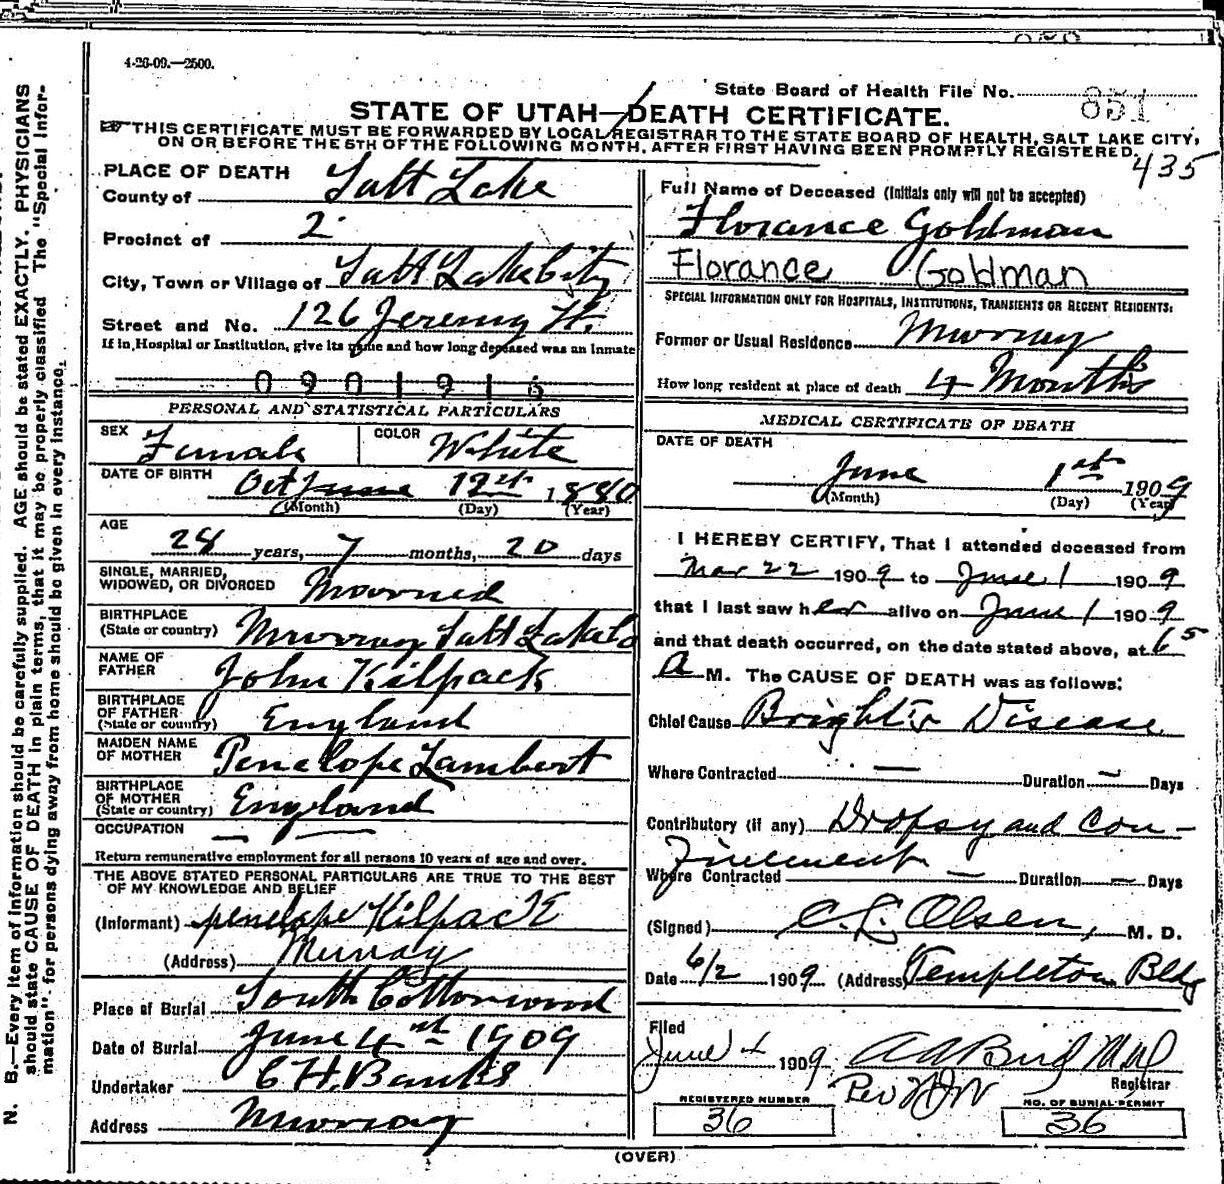 4-26-09.—2500.
State Board of Health File No. 851
STATE OF UTAH—DEATH CERTIFICATE.
THIS CERTIFICATE MUST BE FORWARDED BY LOCAL REGISTRAR TO THE STATE BOARD OF HEALTH, SALT LAKE CITY,
ON OR BEFORE THE 5TH OF THE FOLLOWING MONTH, AFTER FIRST HAVING BEEN PROMPTLY REGISTERED.
435
PLACE OF DEATH
County of Salt Lake
Precinct of 2
City, Town or Village of Salt Lake City
Street and No. 126 Jeremy St.
If in Hospital or Institution, give its name and how long deceased was an inmate
0901916
PERSONAL AND STATISTICAL PARTICULARS
SEX Female COLOR White
DATE OF BIRTH Oct June 12th 1880
(Month) (Day) (Year)
AGE
28 years, 7 months, 20 days
SINGLE, MARRIED,
WIDOWED, OR DIVORCED Married
BIRTHPLACE
(State or country) Murray Salt Lake Co
NAME OF
FATHER John Kilpack
BIRTHPLACE
OF FATHER
(State or country) England
MAIDEN NAME
OF MOTHER Penelope Lambert
BIRTHPLACE
OF MOTHER
(State or country) England
OCCUPATION — —
Return remunerative employment for all persons 10 years of age and over.
THE ABOVE STATED PERSONAL PARTICULARS ARE TRUE TO THE BEST
OF MY KNOWLEDGE AND BELIEF
(Informant) penelope Kilpack
(Address) Murray
Place of Burial South Cottonwood
Date of Burial June 4 1909
Undertaker C H. Banks
Address Murray
Full Name of Deceased (Initials only will not be accepted)
Florance Goldman
Florance Goldman
SPECIAL INFORMATION ONLY FOR HOSPITALS, INSTITUTIONS, TRANSIENTS OR RECENT RESIDENTS:
Former or Usual Residence Murray
How long resident at place of death 4 Months
MEDICAL CERTIFICATE OF DEATH
DATE OF DEATH
June 1st 1909
(Month) (Day) (Year)
I HEREBY CERTIFY, That I attended deceased from
Mar 22 1909 to June 1 1909
that I last saw her alive on June 1 1909
and that death occurred, on the date stated above, at 65
A M. The CAUSE OF DEATH was as follows:
Chief Cause Bright's Disease
Where Contracted — Duration — Days
Contributory (if any) Dropsy and Con-
finement
Where Contracted — Duration — Days
(Signed) C. L. Olsen, M. D.
Date 6/2 1909 (Address) Templeton Bldg
Filed
June 1909
Registrar
REGISTERED NUMBER
36
NO. OF BURIAL PERMIT
36
(OVER)
N. B.—Every item of information should be carefully supplied. AGE should be stated EXACTLY. PHYSICIANS
should state CAUSE OF DEATH in plain terms, that it may be properly classified. The "Special Infor-
mation" for persons dying away from home should be given in every instance.